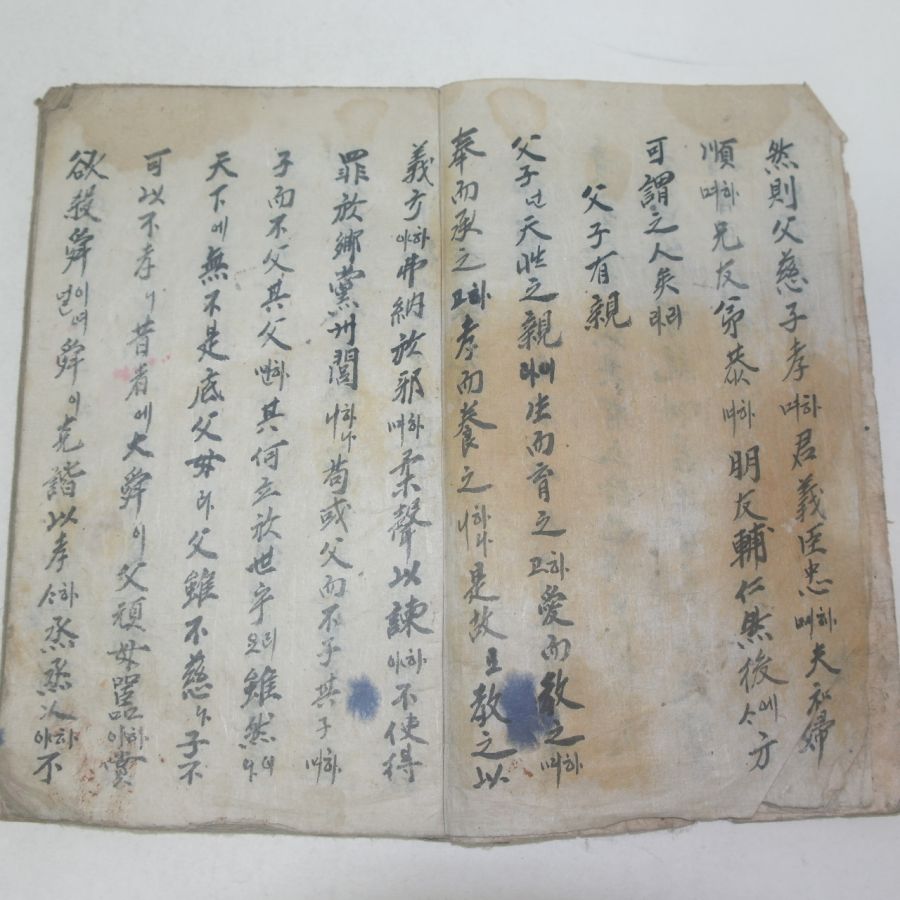 然則父慈子孝하며君義臣忠하며夫和婦
順하며兄友弟恭하며朋友輔仁然後에사方
可謂之人矣리라
父子有親
父子난天性之親이라生而育之하고愛而敎之하며
奉而承之하고孝而養之하나니是故로敎之以
義方하야弗納於邪하며柔聲以諫하야不使得
罪於鄕黨州閭하나니苟或父而不子其子하며
子而不父其父하면其何立於世乎리오雖然이나
天下에無不是底父母라父雖不慈나子不
可以不孝니昔者에大舜이父頑母嚚하야嘗
欲殺舜이여년舜이克諧以孝하사烝烝乂하야不